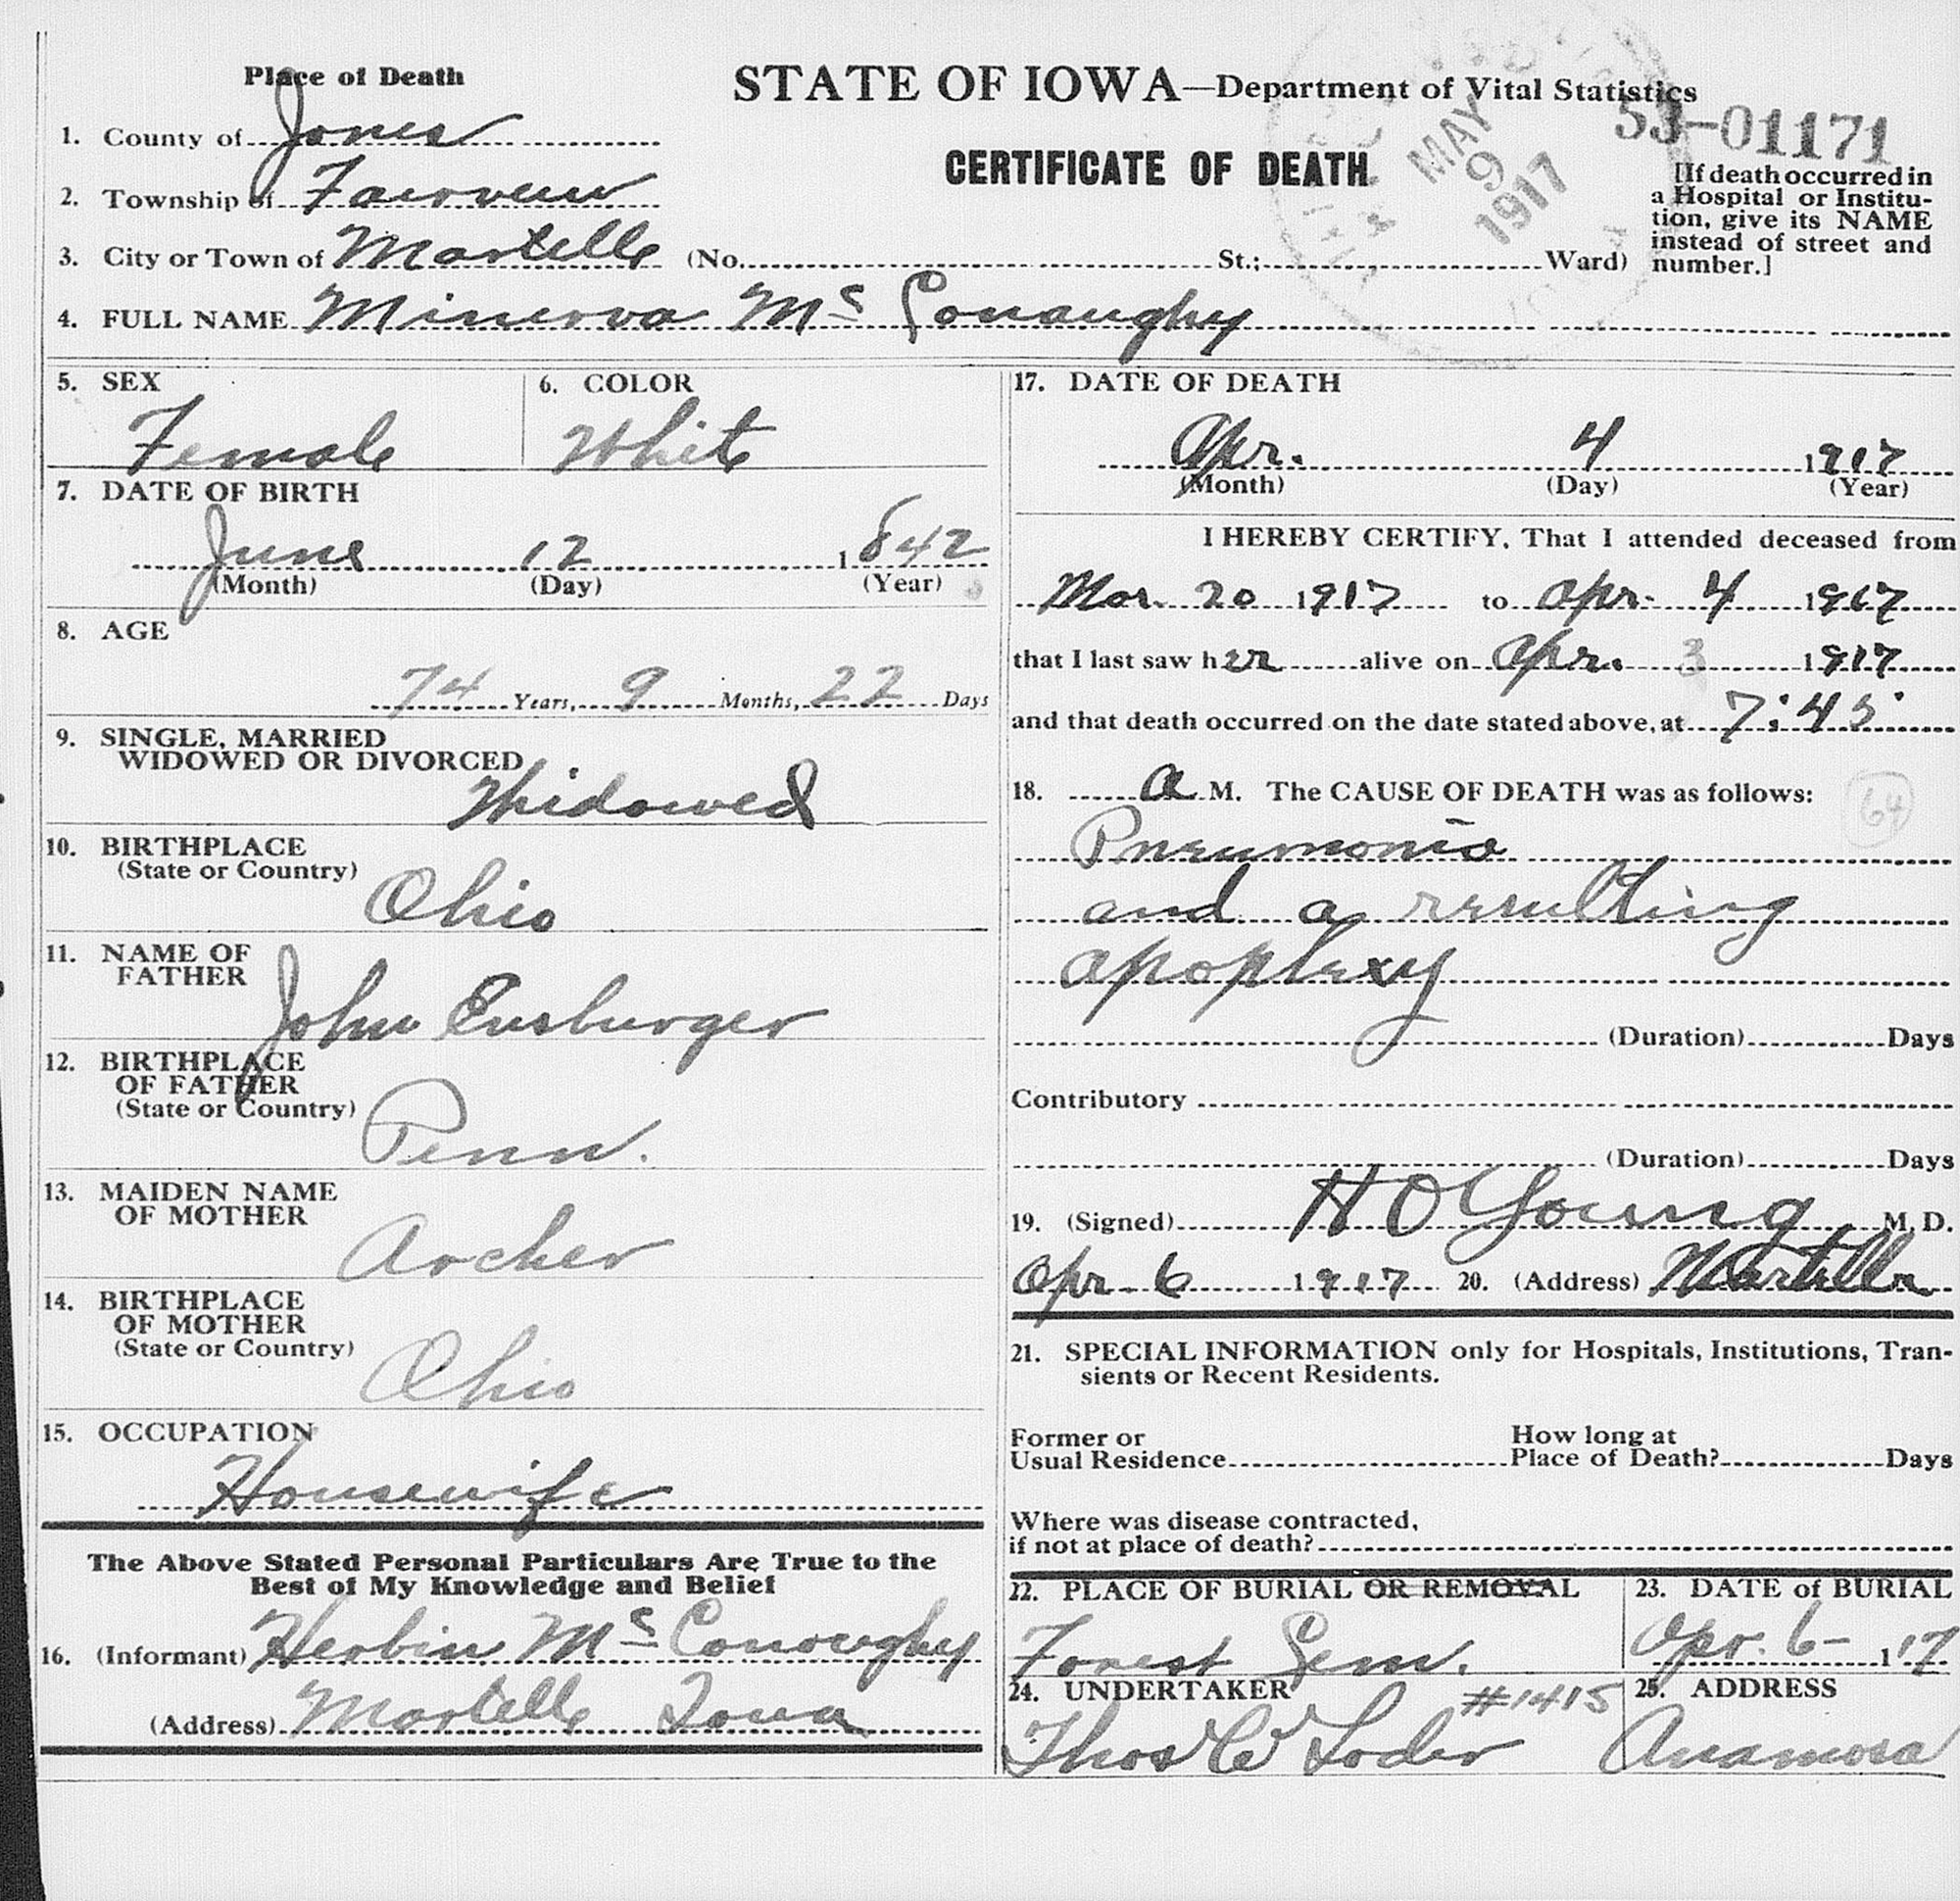 Place of Death
STATE OF IOWA—Department of Vital Statistics
53-01171
MAY 9 1917
1. County of Jones
CERTIFICATE OF DEATH
2. Township of Fairview
[If death occurred in
a Hospital or Institu-
tion, give its NAME
instead of street and
number.]
3. City or Town of Martelle (No. St.; Ward)
4. FULL NAME Minerva Mc Conaughy
5. SEX
Female
6. COLOR
White
7. DATE OF BIRTH
June 12 1842
(Month) (Day) (Year)
8. AGE
74 Years, 9 Months, 22 Days
9. SINGLE, MARRIED
WIDOWED OR DIVORCED
Widowed
10. BIRTHPLACE
(State or Country)
Ohio
11. NAME OF
FATHER
John Ensburger
12. BIRTHPLACE
OF FATHER
(State or Country)
Penn.
13. MAIDEN NAME
OF MOTHER
Archer
14. BIRTHPLACE
OF MOTHER
(State or Country)
Ohio
15. OCCUPATION
Housewife
The Above Stated Personal Particulars Are True to the
Best of My Knowledge and Belief
16. (Informant) Herbin Mc Conoughy
(Address) Martelle Iowa
17. DATE OF DEATH
Apr. 4 1917
(Month) (Day) (Year)
I HEREBY CERTIFY, That I attended deceased from
Mar. 20 1917 to Apr. 4 1917
that I last saw her alive on Apr. 3 1917
and that death occurred on the date stated above, at 7:45
18. a M. The CAUSE OF DEATH was as follows:
64
Pneumonia
and a resulting
apoplexy
(Duration) Days
Contributory
(Duration) Days
19. (Signed) H O Young M. D.
Apr 6 1917 20. (Address) Martelle
21. SPECIAL INFORMATION only for Hospitals, Institutions, Tran-
sients or Recent Residents.
Former or
Usual Residence
How long at
Place of Death? Days
Where was disease contracted,
if not at place of death?
22. PLACE OF BURIAL OR REMOVAL
Forest Cem.
23. DATE of BURIAL
Apr. 6- 1 17
24. UNDERTAKER
#1415
Thos W Loder
25. ADDRESS
Anamosa